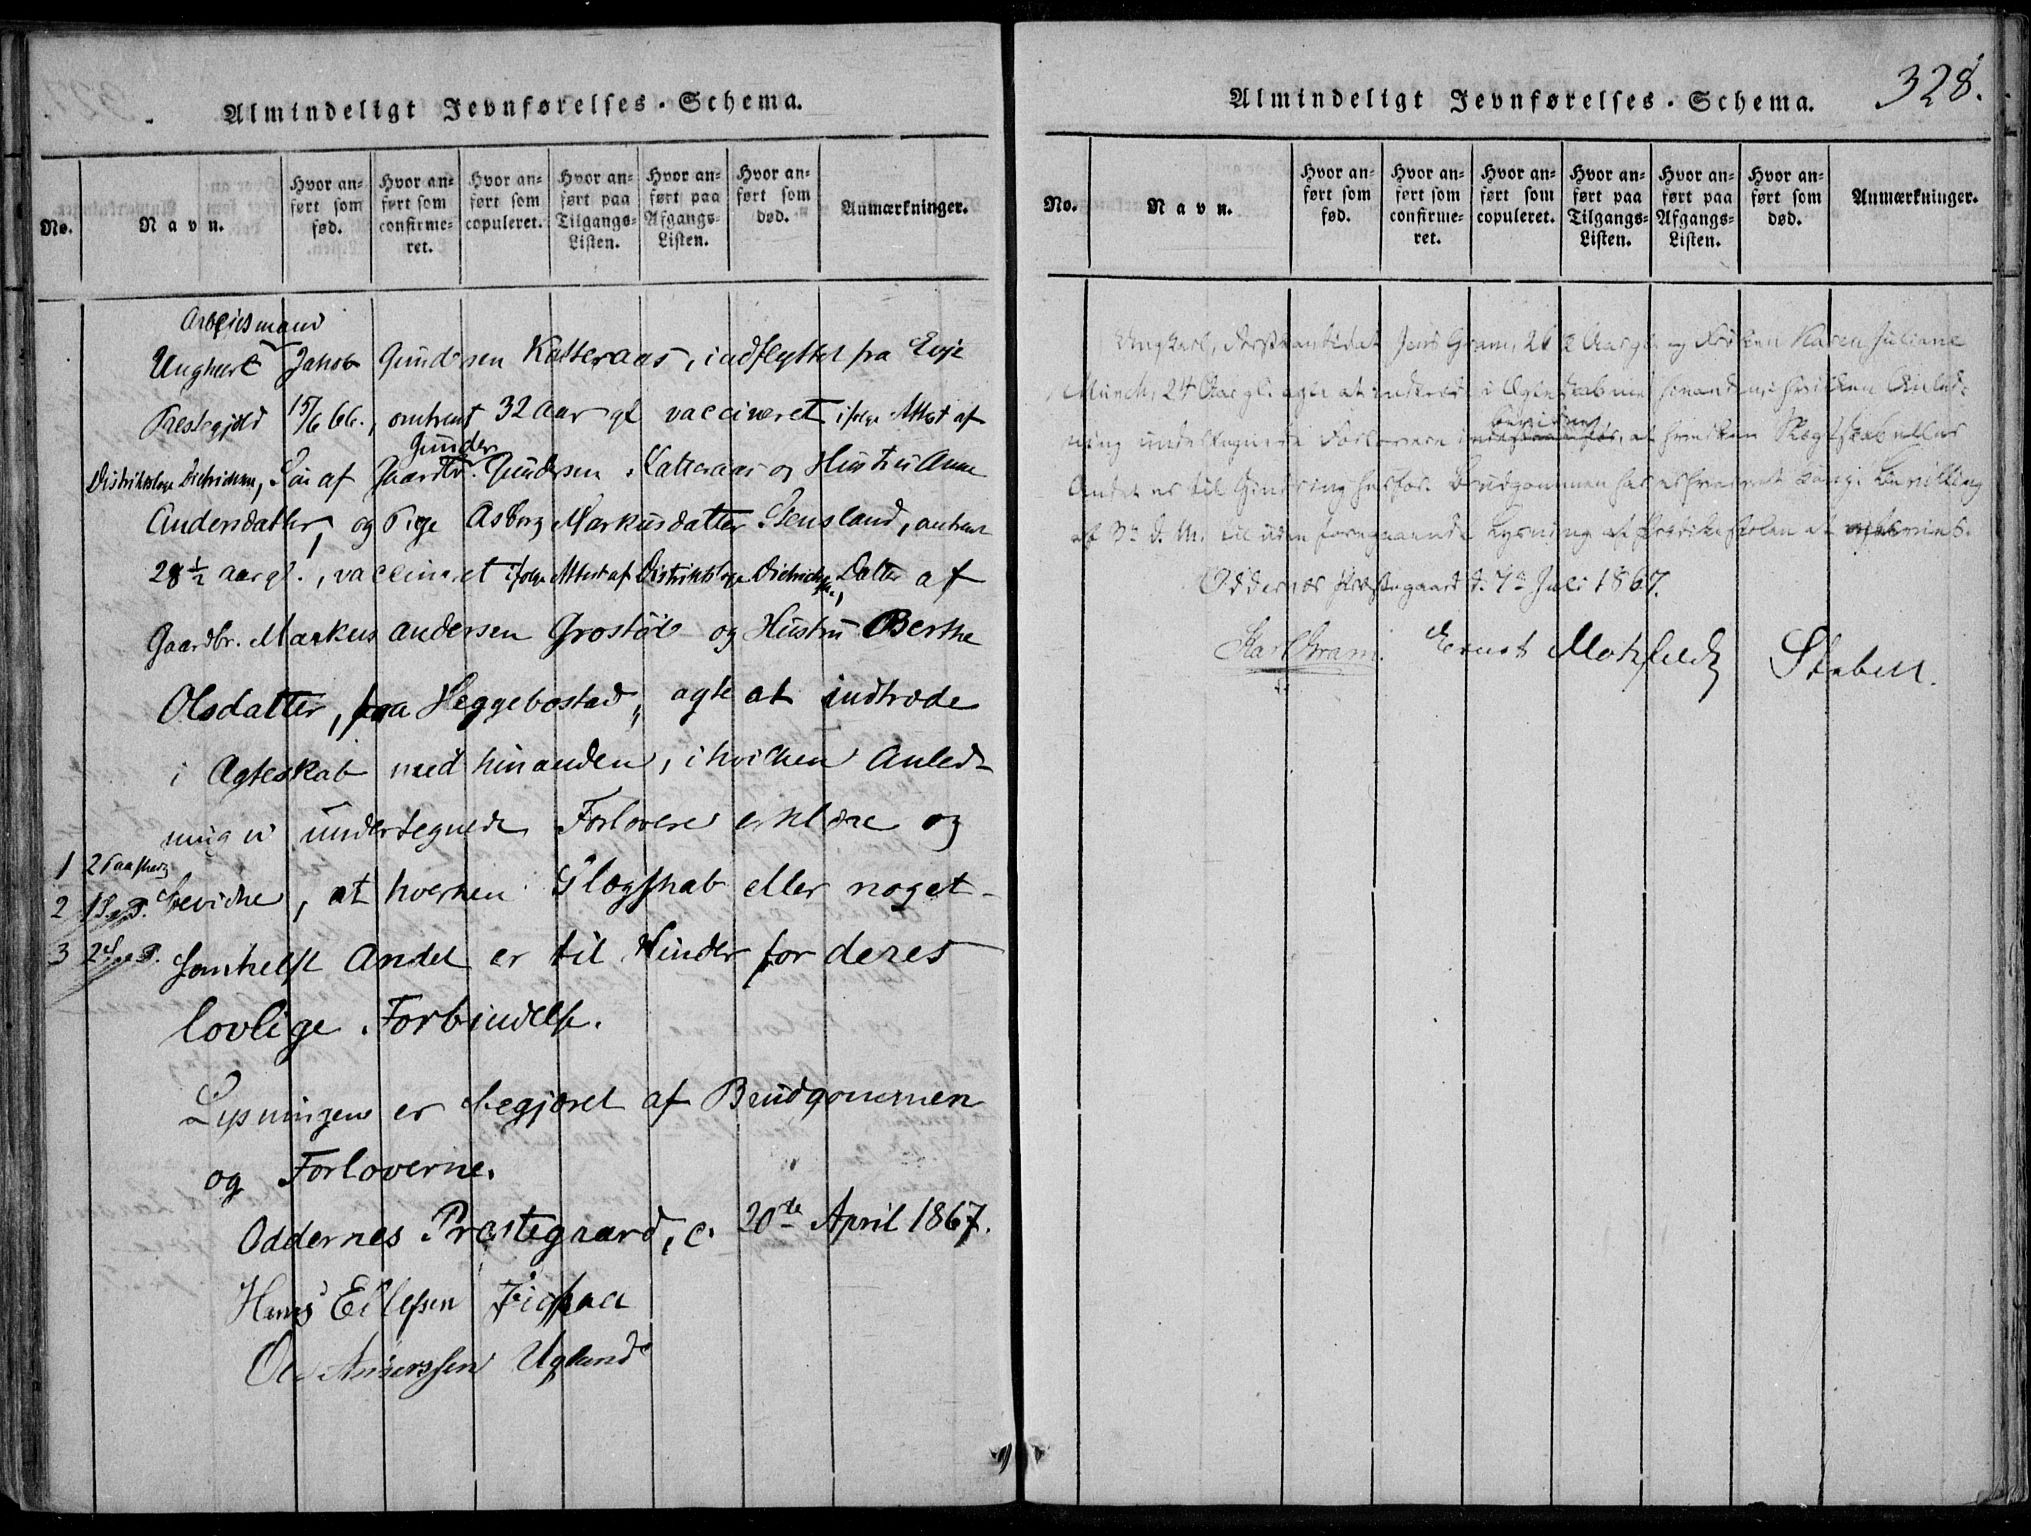 Almindeligt Jevnførelses-Schema.
No.
Navn.
Hvor an-
ført som
fød.
Hvor an-
ført som
confirme-
ret.
Hvor an-
ført som
copuleret.
Hvor an-
ført paa
Tilgangs-
Listen.
Hvor an-
ført paa
Afgangs-
Listen.
Hvor an-
ført som
død.
Anmærkninger.
Arbeidsmand
Ungkarl Jakob Gundersen Katteraas, indflyttet fra Evje
Præstegjeld 15/6 66., omtrent 32 Aar gl. vaccineret ifølge Attest af
Gunder
Distriktslæge Dietrichson, Søn af Gaardbr. Gundersen Katteraas og Hustru Anne
Andersdatter, og Pige Asborg Markusdatter Stensland, omtrent
28 1/2 Aar gl., vaccineret ifølge Attest af Distriktslæge Dietrichson, Datter af
Gaardbr. Markus Andersen Grostøl og Hustru Berthe
Olsdatter, fra Heggebostad, agte at indtræde
i Ægteskab med hinanden, i hvilken Anled-
ning vi undertegnede Forlovere erklære og
1 2 Paaskedg
2 1 S. e. P. bevidne, at hverken Slægskab eller noget-
3 2 S. e. P. somhelst Andet er til Hinder for deres
lovlige Forbindelse.
Lysningen er begjæret af Brudgommen
og Forloverne.
Oddernes Præstegaard, d. 20de April 1867.
Hans Ellefsen
Ole Anderssen Ugland
Almindeligt Jevnførelses-Schema.
328.
No.
Navn.
Hvor an-
ført som
fød.
Hvor an-
ført som
confirme-
ret.
Hvor an-
ført som
copuleret.
Hvor an-
ført paa
Tilgangs-
Listen.
Hvor an-
ført paa
Afgangs-
Listen.
Hvor an-
ført som
død.
Anmærkninger.
Ungkarl, Forstkandidat Jens Gram, 26 1/2 Aar gl. og Frøken Karen Juliane
Münch, 24 Aar gl. agte at indtræde i Ægteskab med hinanden, i hvilken Anled-
bevidne
ning undertegnede Forlovere at hverken Slægtskab eller
Andet er til Hindring herfor. Brudgommen har erhvervet kongl. Bevilling
af 3de d. M. til uden foregaaende Lysning af Prædikestolen at
Oddernes Præstegaard d. 7de Juli 1867.
Karl Gram. Ernst Motzfeldt